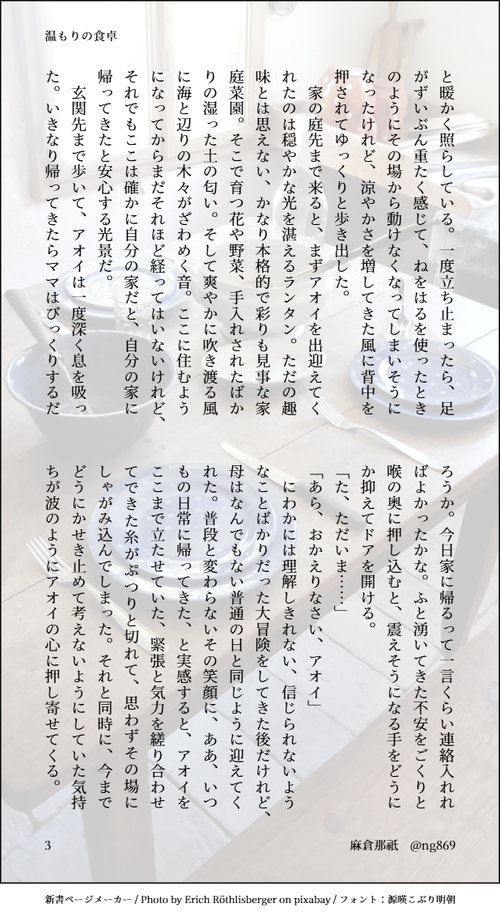 温もりの食卓
と暖かく照らしている。一度立ち止まったら、足
がずいぶん重たく感じて、ねをはるを使ったとき
のようにその場から動けなくなってしまいそうに
なったけれど、涼やかさを増してきた風に背中を
押されてゆっくりと歩き出した。
　家の庭先まで来ると、まずアオイを出迎えてく
れたのは穏やかな光を湛えるランタン。ただの趣
味とは思えない、かなり本格的で彩りも見事な家
庭菜園。そこで育つ花や野菜、手入れされたばか
りの湿った土の匂い。そして爽やかに吹き渡る風
に海と辺りの木々がざわめく音。ここに住むよう
になってからまだそれほど経ってはいないけれど、
それでもここは確かに自分の家だと、自分の家に
帰ってきたと安心する光景だ。
　玄関先まで歩いて、アオイは一度深く息を吸っ
た。いきなり帰ってきたらママはびっくりするだ
ろうか。今日家に帰るって一言くらい連絡入れれ
ばよかったかな。ふと湧いてきた不安をごくりと
喉の奥に押し込むと、震えそうになる手をどうに
か抑えてドアを開ける。
「た、ただいま……」
「あら、おかえりなさい、アオイ」
　にわかには理解しきれない、信じられないよう
なことばかりだった大冒険をしてきた後だけれど、
母はなんでもない普通の日と同じように迎えてく
れた。普段と変わらないその笑顔に、ああ、いつ
もの日常に帰ってきた、と実感すると、アオイを
ここまで立たせていた、緊張と気力を縒り合わせ
てできた糸がぷつりと切れて、思わずその場に
しゃがみ込んでしまった。それと同時に、今まで
どうにかせき止めて考えないようにしていた気持
ちが波のようにアオイの心に押し寄せてくる。
3
麻倉那祇　@ng869
新書ページメーカー / Photo by Erich Röthlisberger on pixabay / フォント：源暎こぶり明朝